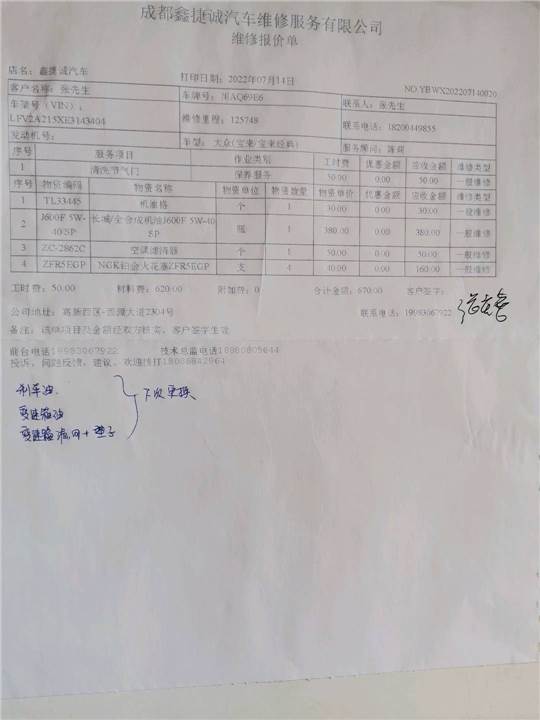 成都鑫捷诚汽车维修服务有限公司
维修报价单
店名：鑫捷诚汽车 打印日期：2022年07月14日 NO.YBWX202207140020
客户名称：张先生 车牌号：川AQ69E6 联系人：张先生
车架号（VIN）：
LFV2A215XE3143404 维修里程：125748 联系电话：18200449855
发动机号： 车型：大众(宝来/宝来经典) 服务顾问：陈莉
序号 服务项目 作业类别 工时费 优惠金额 应收金额 维修类型
1 清洗节气门 保养服务 50.00 0.00 50.00 一般维修
序号 物资编码 物资名称 物资单位 物资数量 物资单价 优惠金额 应收金额 维修类型
1 TL33445 机滤格 个 1 30.00 0.00 30.00 一般维修
2 J600F 5W-40 SP 长城/全合成机油J600F 5W-40 SP 1 380.00 0.00 380.00 一般维修
3 ZC-2862C 空调滤清器 个 1 50.00 0.00 50.00 一般维修
4 ZFR5EGP NGK铂金火花塞ZFR5EGP 支 4 40.00 0.00 160.00 一般维修
工时费：50.00 材料费：620.00 附加费：0.00 合计金额：670.00 客户签字：
公司地址：高新西区-西源大道2304号 联系电话：19983067922
备注：维修项目及金额经双方核实，客户签字生效
前台电话19983067922 技术总监电话18980809644
投诉、问题反馈、建议、欢迎拨打18086842964
刹车油
变速箱油
变速箱滤网+垫子
下次更换